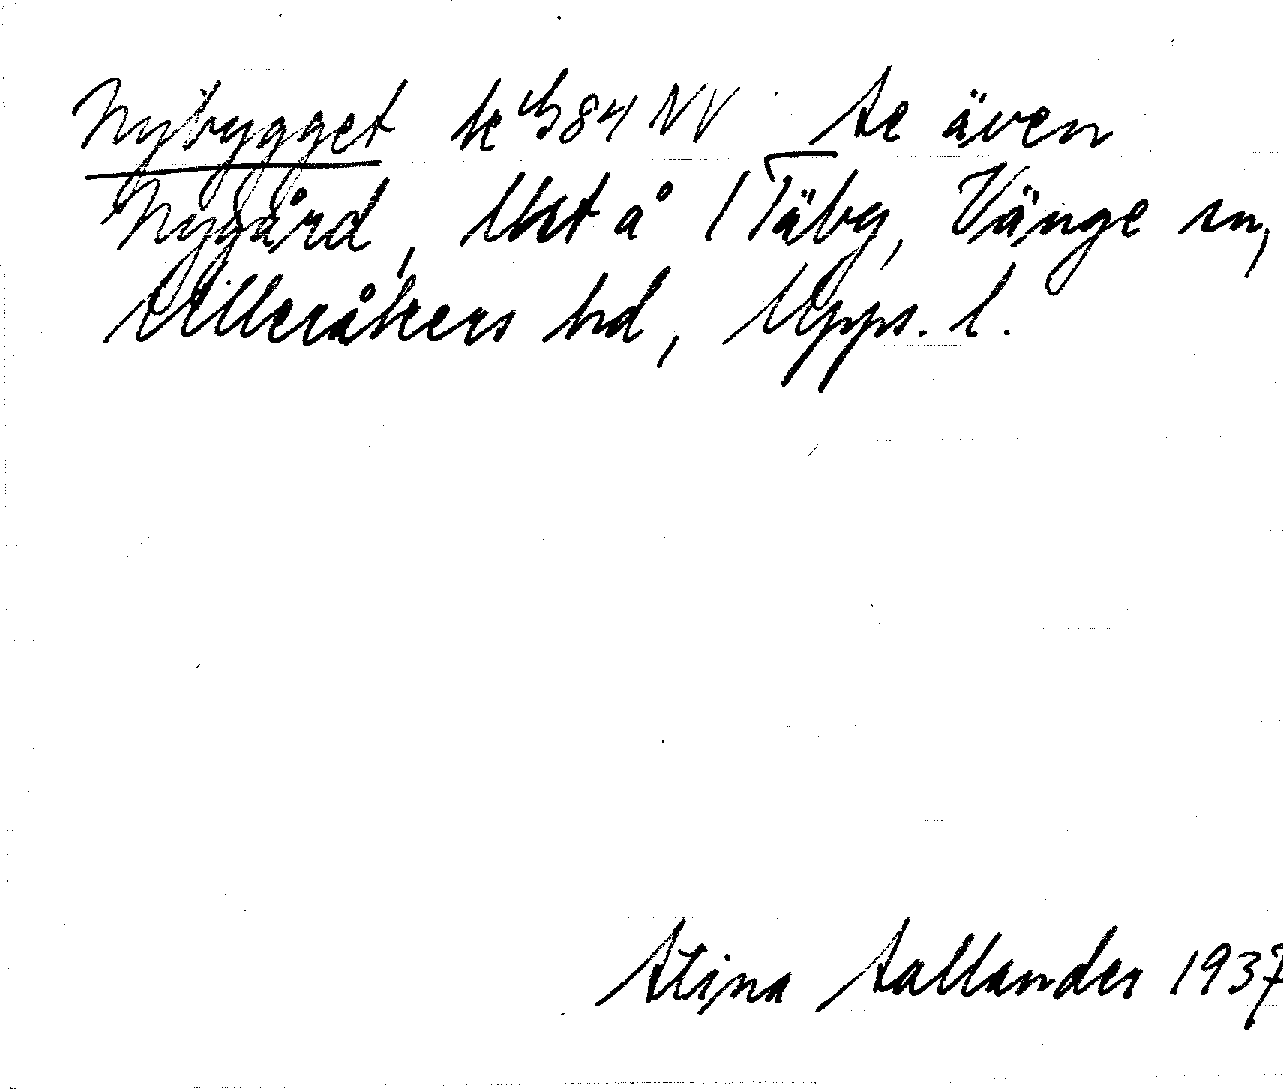 Nybygget k 384 NV Se även
Nygård, lht å 1 Täby, Vänge sn,
Ulleråkers hd, Upps. l.
Stina Sallander 1937